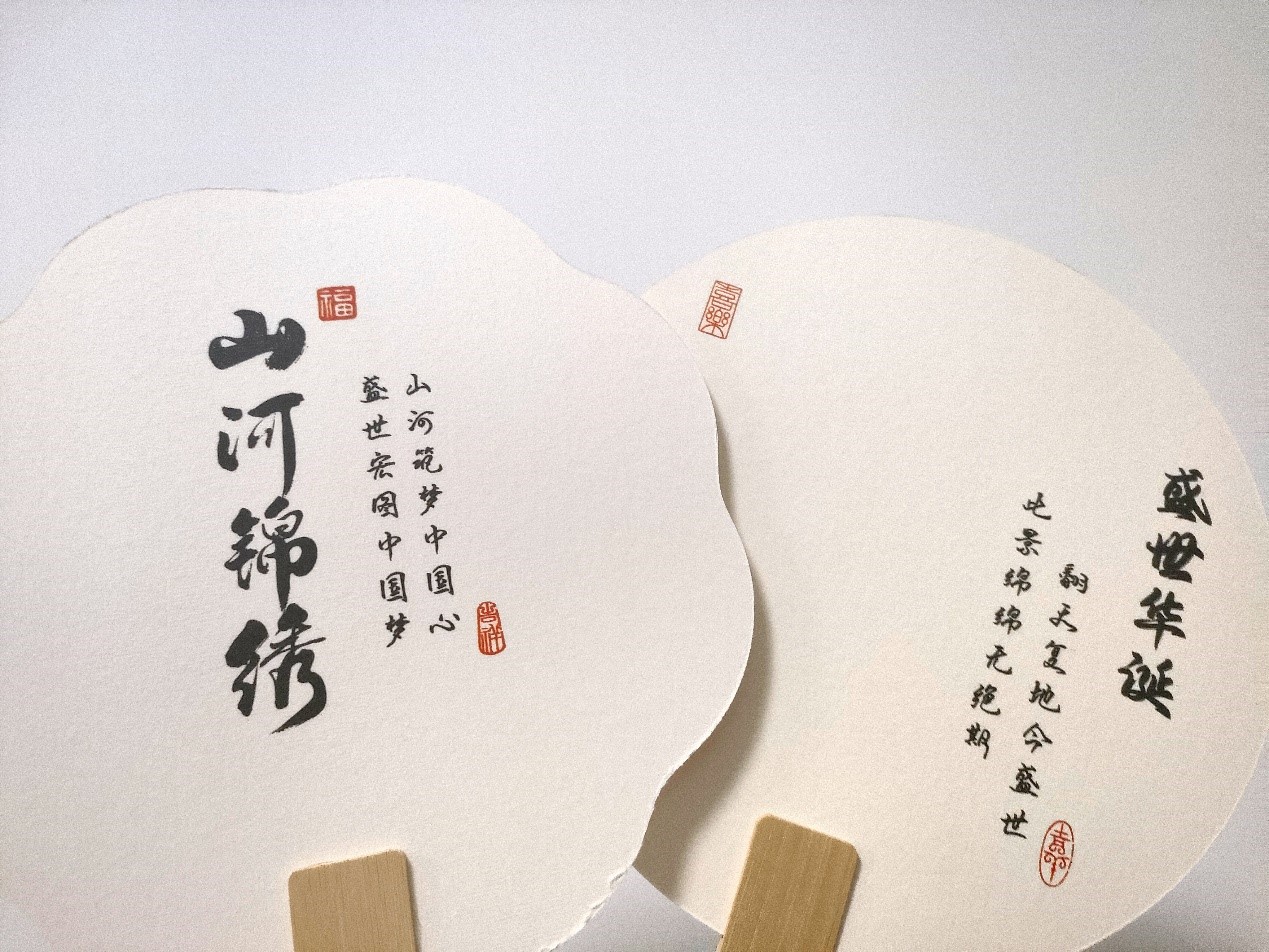 山河锦绣
福
山河筑梦中国心
盛世宏图中国梦
吉祥
喜樂
盛世华诞
翻天复地今盛世
此景绵绵无绝期